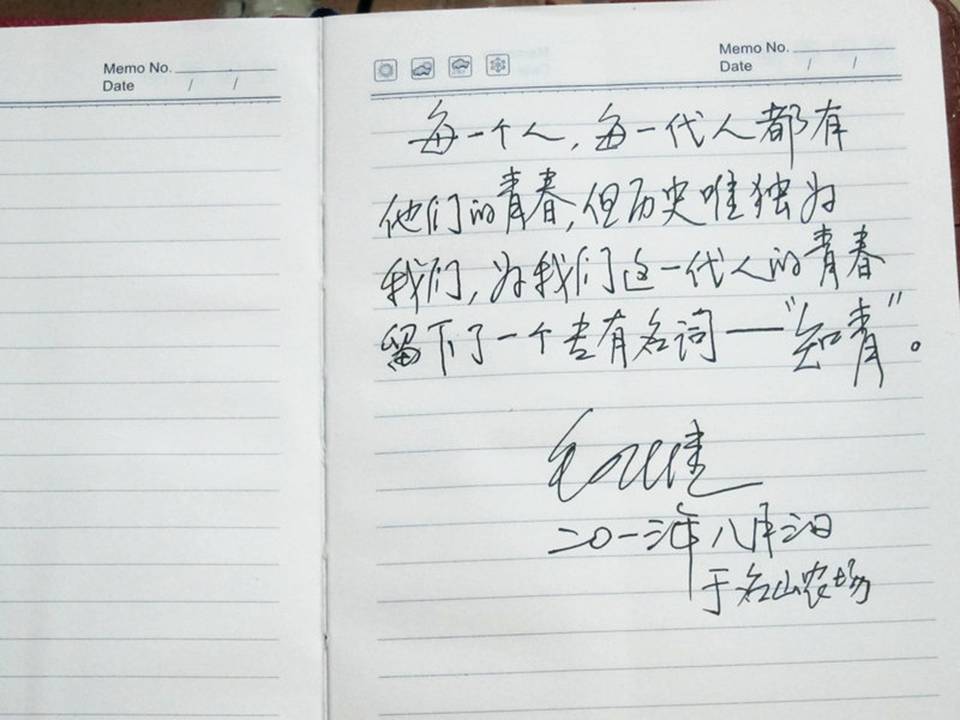 Memo No.
Date / /
Memo No.
Date / /
每一个人,每一代人都有
他们的青春,但历史唯独为
我们,为我们这一代人的青春
留下了一个专有名词——“知青”。
二〇一三年八月三日
于名山农场